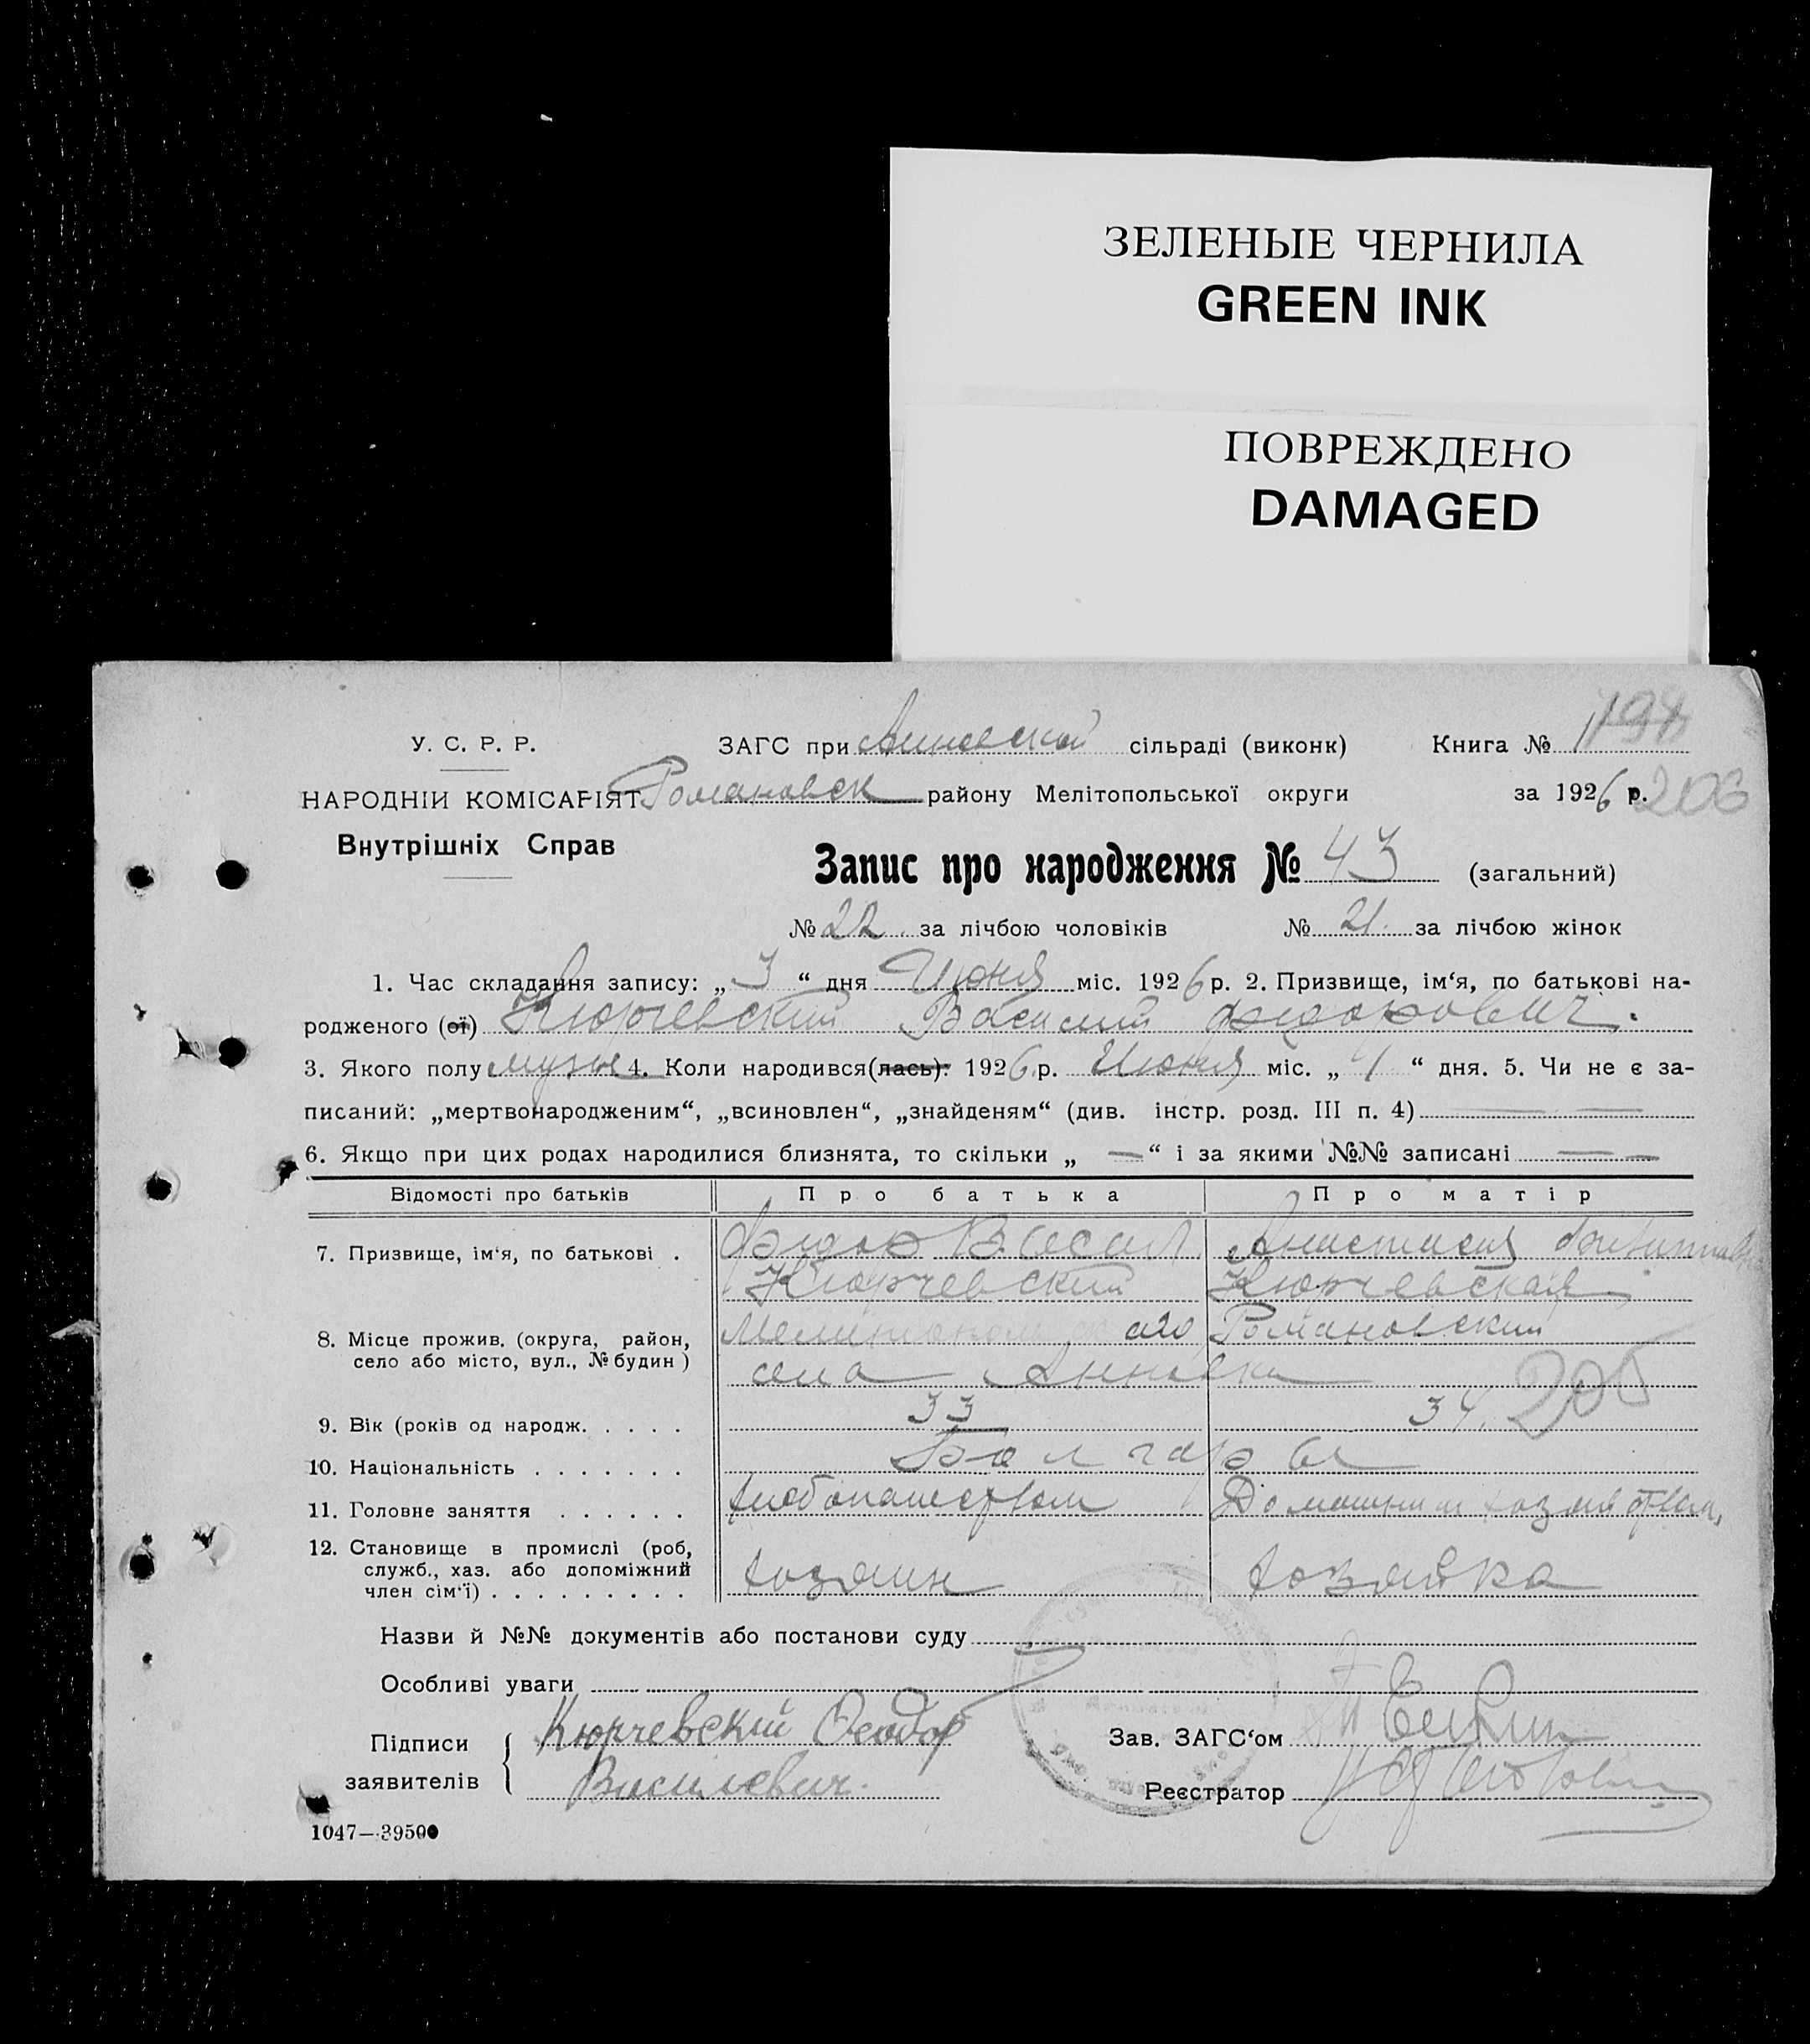 ЗЕЛЕНЫЕ ЧЕРНИЛА
GREEN INK
ПОВРЕЖДЕНО
DAMAGED
У. С. Р. Р.
ЗАГС при Анновской сільраді (виконк) Книга № 1
198
НАРОДНІЙ КОМІСАРІЯТ Романовск району Мелітопольської округи за 1926 р. 206
Внутрішніх Справ
Запис про народження № 43 (загальний)
№ 22 за лічбою чоловіків № 21 за лічбою жінок
1. Час складання запису: „3“ дня Июня міс. 1926 р. 2. Призвище, ім‘я, по батькові на-
родженого (ої) Кюрчевский Василий Федорович.
3. Якого полу мужс 4. Коли народився(лась): 1926 р. Июня міс. „1“ дня. 5. Чи не є за-
писаний: „мертвонародженим“, „всиновлен“, „знайденям“ (див. інстр. розд. III п. 4) — —
6. Якщо при цих родах народилися близнята, то скільки „—“ і за якими №№ записані — —
Відомості про батьків Про батька Про матір
7. Призвище, ім‘я, по батькові . Федор Васил Анастасия
Кюрчевский Кюрчевская
8. Місце прожив. (округа, район, Романовский
село або місто, вул., № будин ) села Анновки
205
9. Вік (років од народж. . . . . 33 34.
10. Національність . . . . . . . Болгары
11. Головне заняття . . . . . . хлебопашеством Домашним хозяйством,
12. Становище в промислі (роб,
служб., хаз. або допоміжний хозяин хозяйка
член сім‘ї) . . . . . . . . .
Назви й №№ документів або постанови суду
Особливі уваги
Підписи Кюрчевскій Феодор Зав. ЗАГС‘ом
заявителів Василевич. Реєстратор
1047—39500